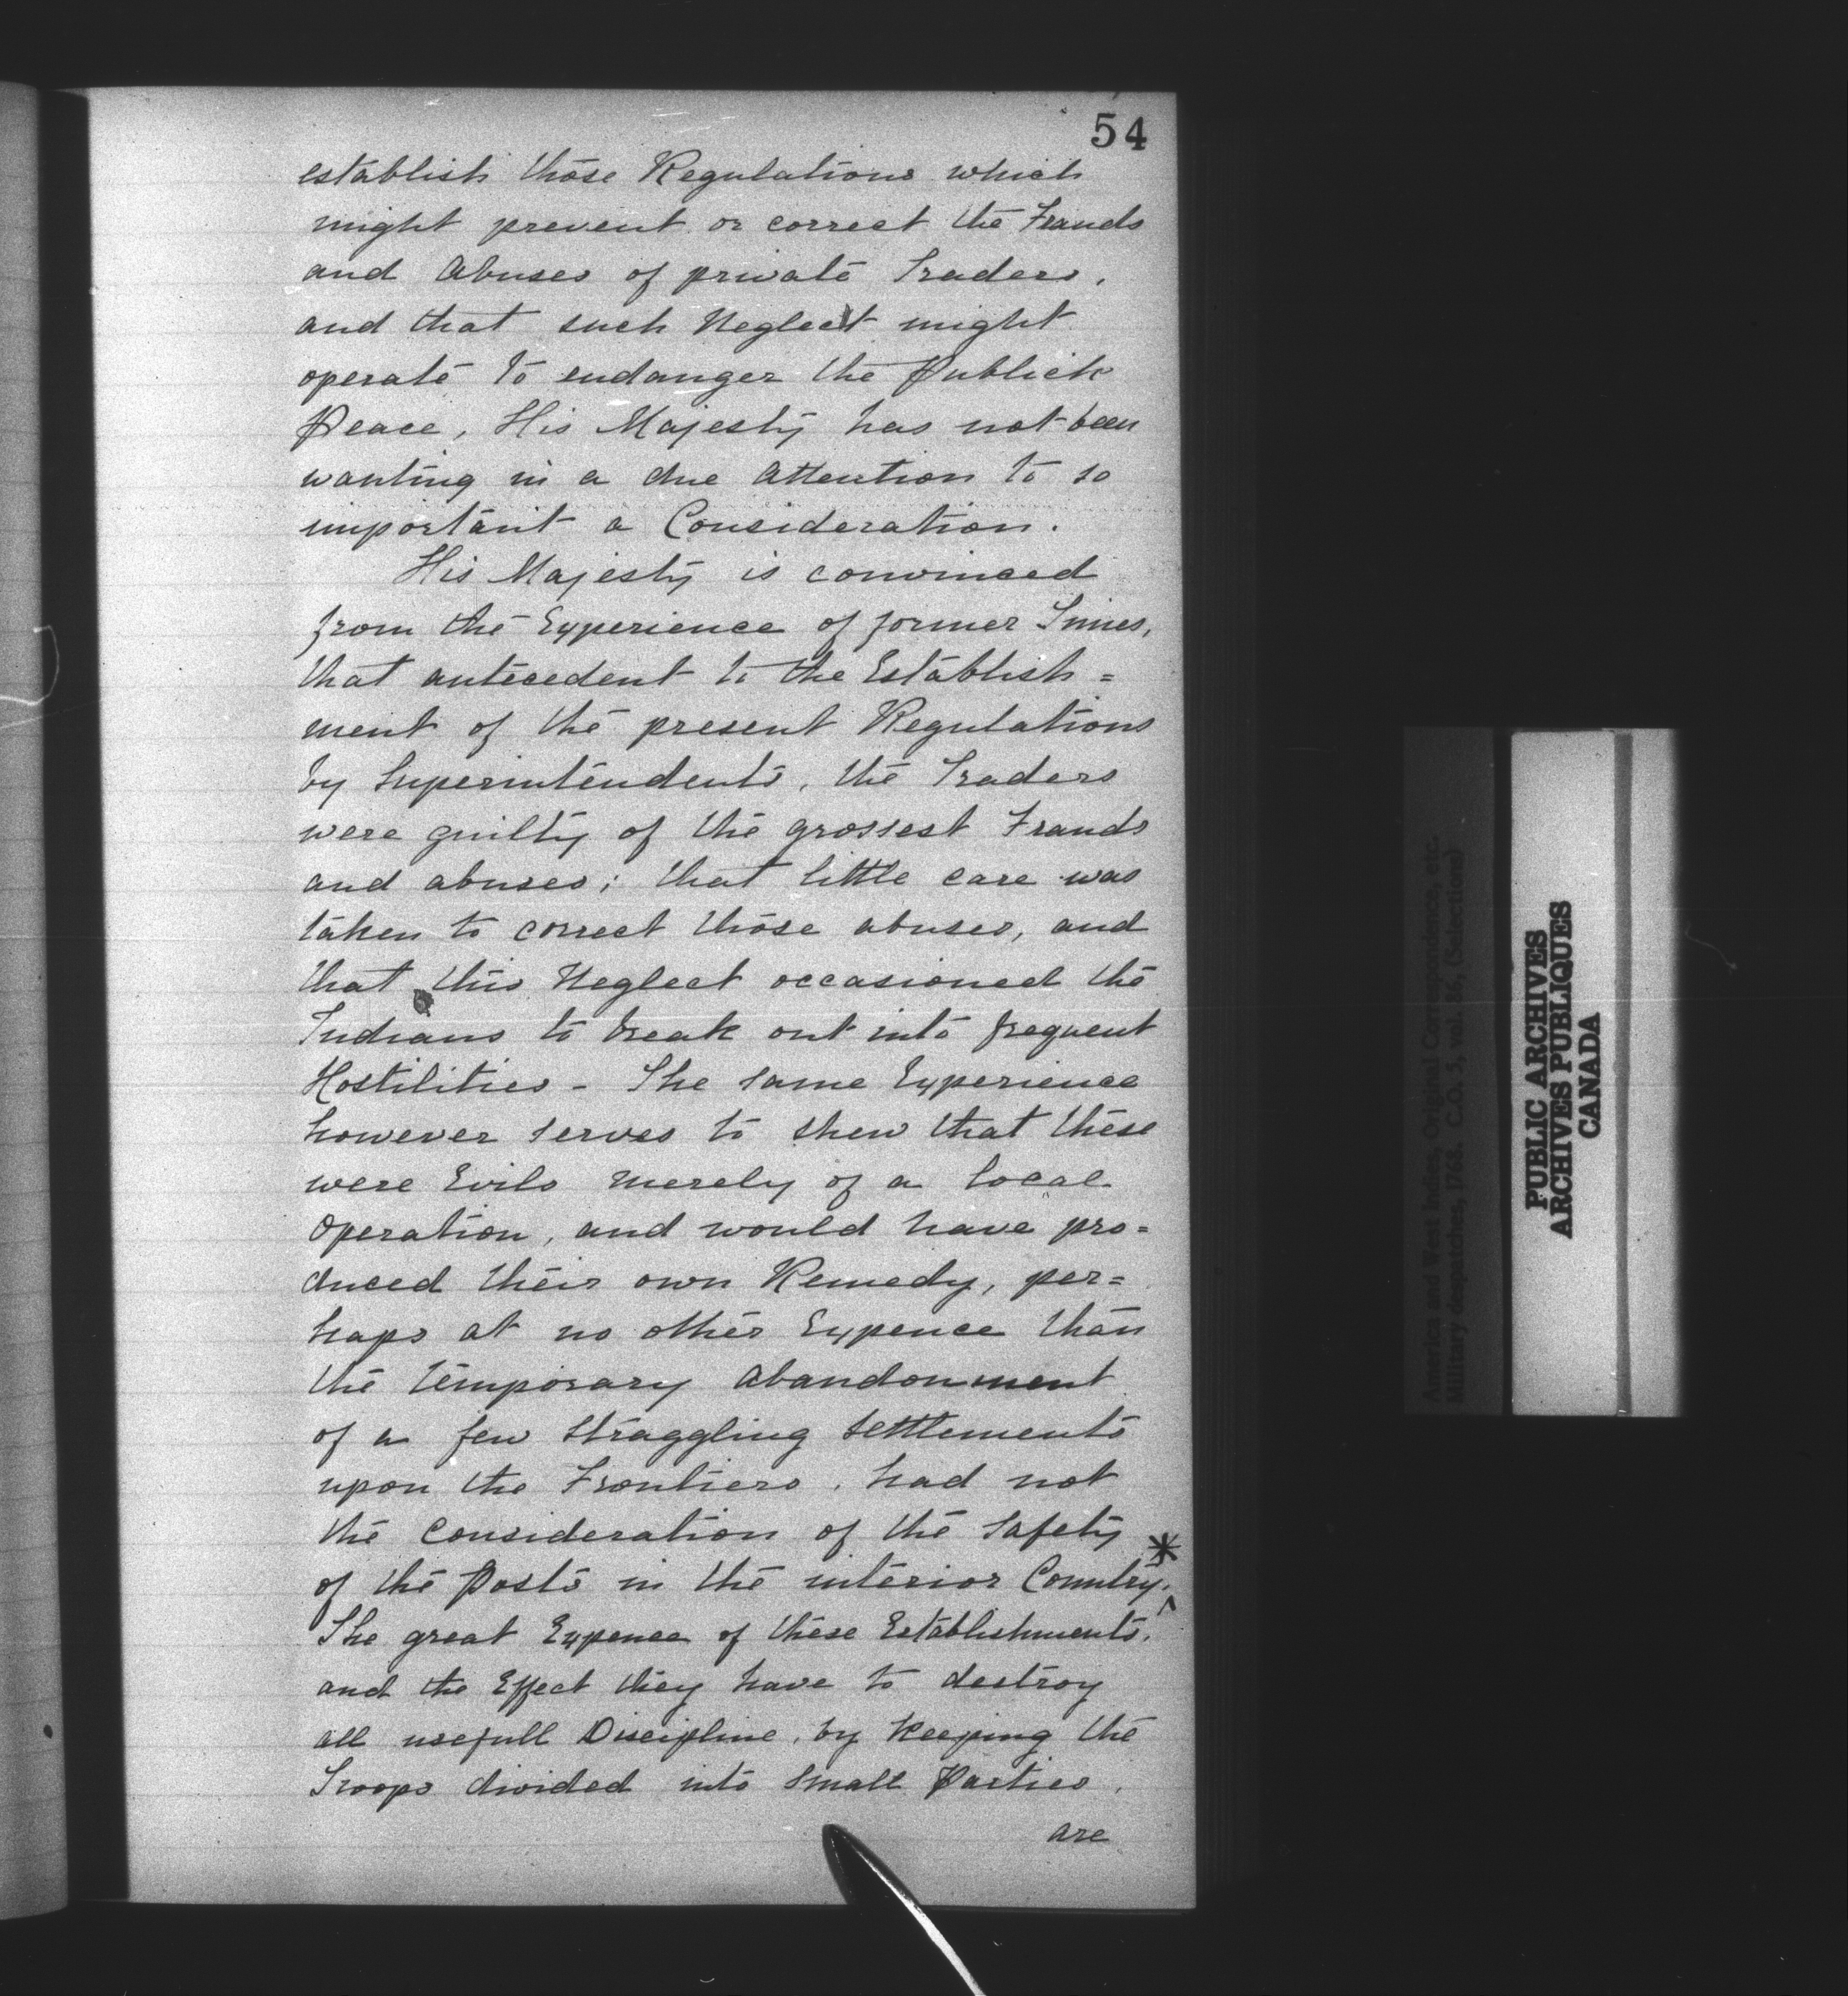 54
establish those Regulations which
might prevent or correct the Frauds
and Abuses of private Traders,
and that such Neglect might
operate to endanger the Publick
Peace, His Majesty has not been
wanting in a due Attention to so
important a Consideration.
His Majesty is convinced
from the Experience of former Times,
that antecedent to the Establish=
ment of the present Regulations
by Superintendents, the Traders
were guilty of the grossest Frauds
and abuses; that little care was
taken to correct those abuses, and
that this Neglect occasioned the
Indians to break out into frequent
Hostilities - The same Experience
however serves to shew that these
were Evils merely of a local
Operation, and would have pro=
duced their own Remedy, per=
haps at no other Expence than
the temporary abandonment
of a few straggling settlements
upon the Frontiers, had not
the consideration of the Safety
of the Posts in the interior Country. *
^
The great Expence of these Establishments,
and the Effect they have to destroy
all usefull Discipline, by keeping the
Troops divided into small Parties,
are
America and West Indies, Original Correspondence, etc.
Military despatches, 1768. C.O. 5, vol. 86, (Selection)
PUBLIC ARCHIVES
ARCHIVES PUBLIQUES
CANADA